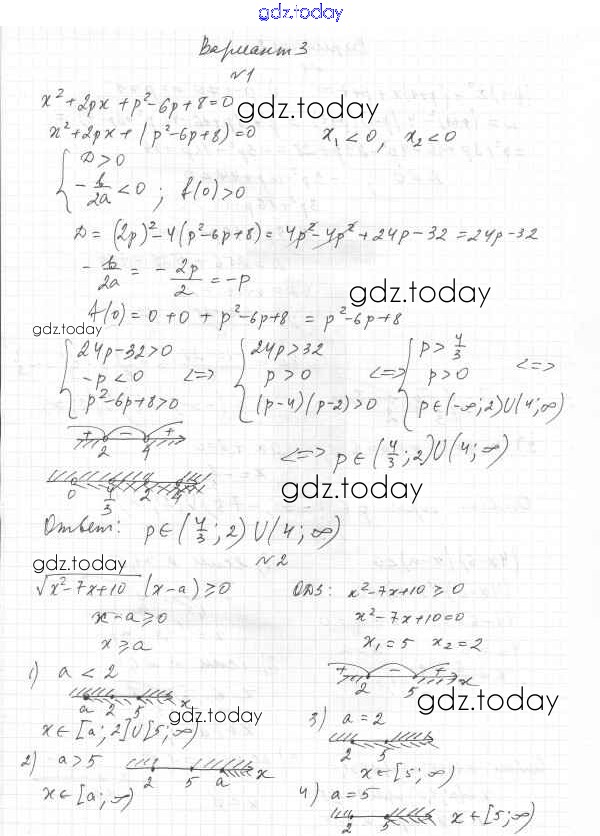 gdz.today
Вариант 3
№1
x²+2px+p²-6p+8=0 gdz.today
x²+2px+(p²-6p+8)=0 x₁<0, x₂<0
{ D>0
-b/2a<0; f(0)>0
D=(2p)²-4(p²-6p+8)=4p²-4p²+24p-32=24p-32
-b/2a=-2p/2=-p
gdz.today
f(0)=0+0+p²-6p+8=p²-6p+8
gdz.today
{ 24p-32>0 { 24p>32 { p>4/3
-p<0 <=> p>0 <=> p>0 <=>
p²-6p+8>0 (p-4)(p-2)>0 p∈(-∞;2)U(4;∞)
+ - + 2 4
<=> p∈(4/3;2)U(4;∞)
0 4/3 2 4
gdz.today
Ответ: p∈(4/3;2)U(4;∞)
№2
gdz.today
√x²-7x+10 (x-a)≥0 ОДЗ: x²-7x+10≥0
x-a≥0 x²-7x+10=0
x≥a x₁=5 x₂=2
+ - + 2 5 x
1) a<2
a 2 5 x
gdz.today
gdz.today
x∈[a;2]U[5;∞)
3) a=2
2 5
x∈[5;∞)
2) a>5 2 5 a x
x∈[a;∞)
4) a=5
2 5 x∈[5;∞)